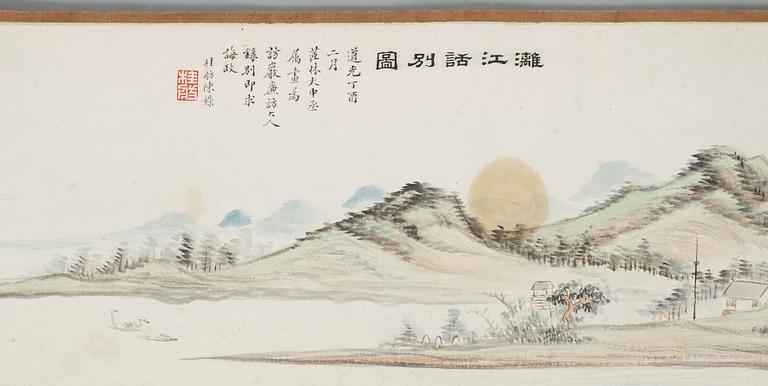 灕江話別圖
道光丁酉
二月
茝林大中丞
屬畫為
訪巖廉訪大人
錄別即求
誨政
桂舫陳鑅